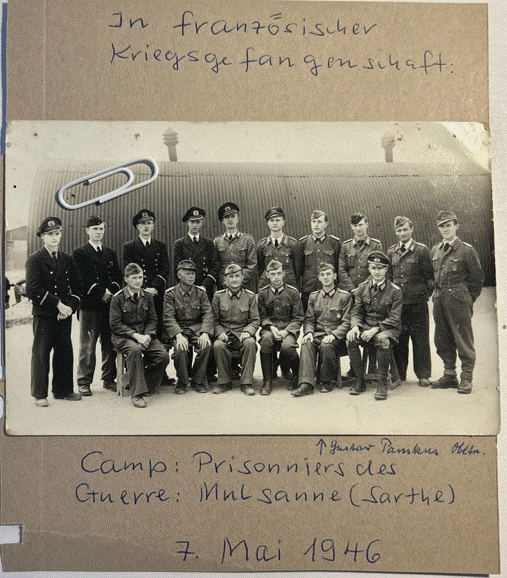 In französischer
Kriegsgefangenschaft:
↑ Gustav Panskus Obltn.
Camp: Prisonniers des
Guerre: Mulsanne (Sarthe)
7. Mai 1946